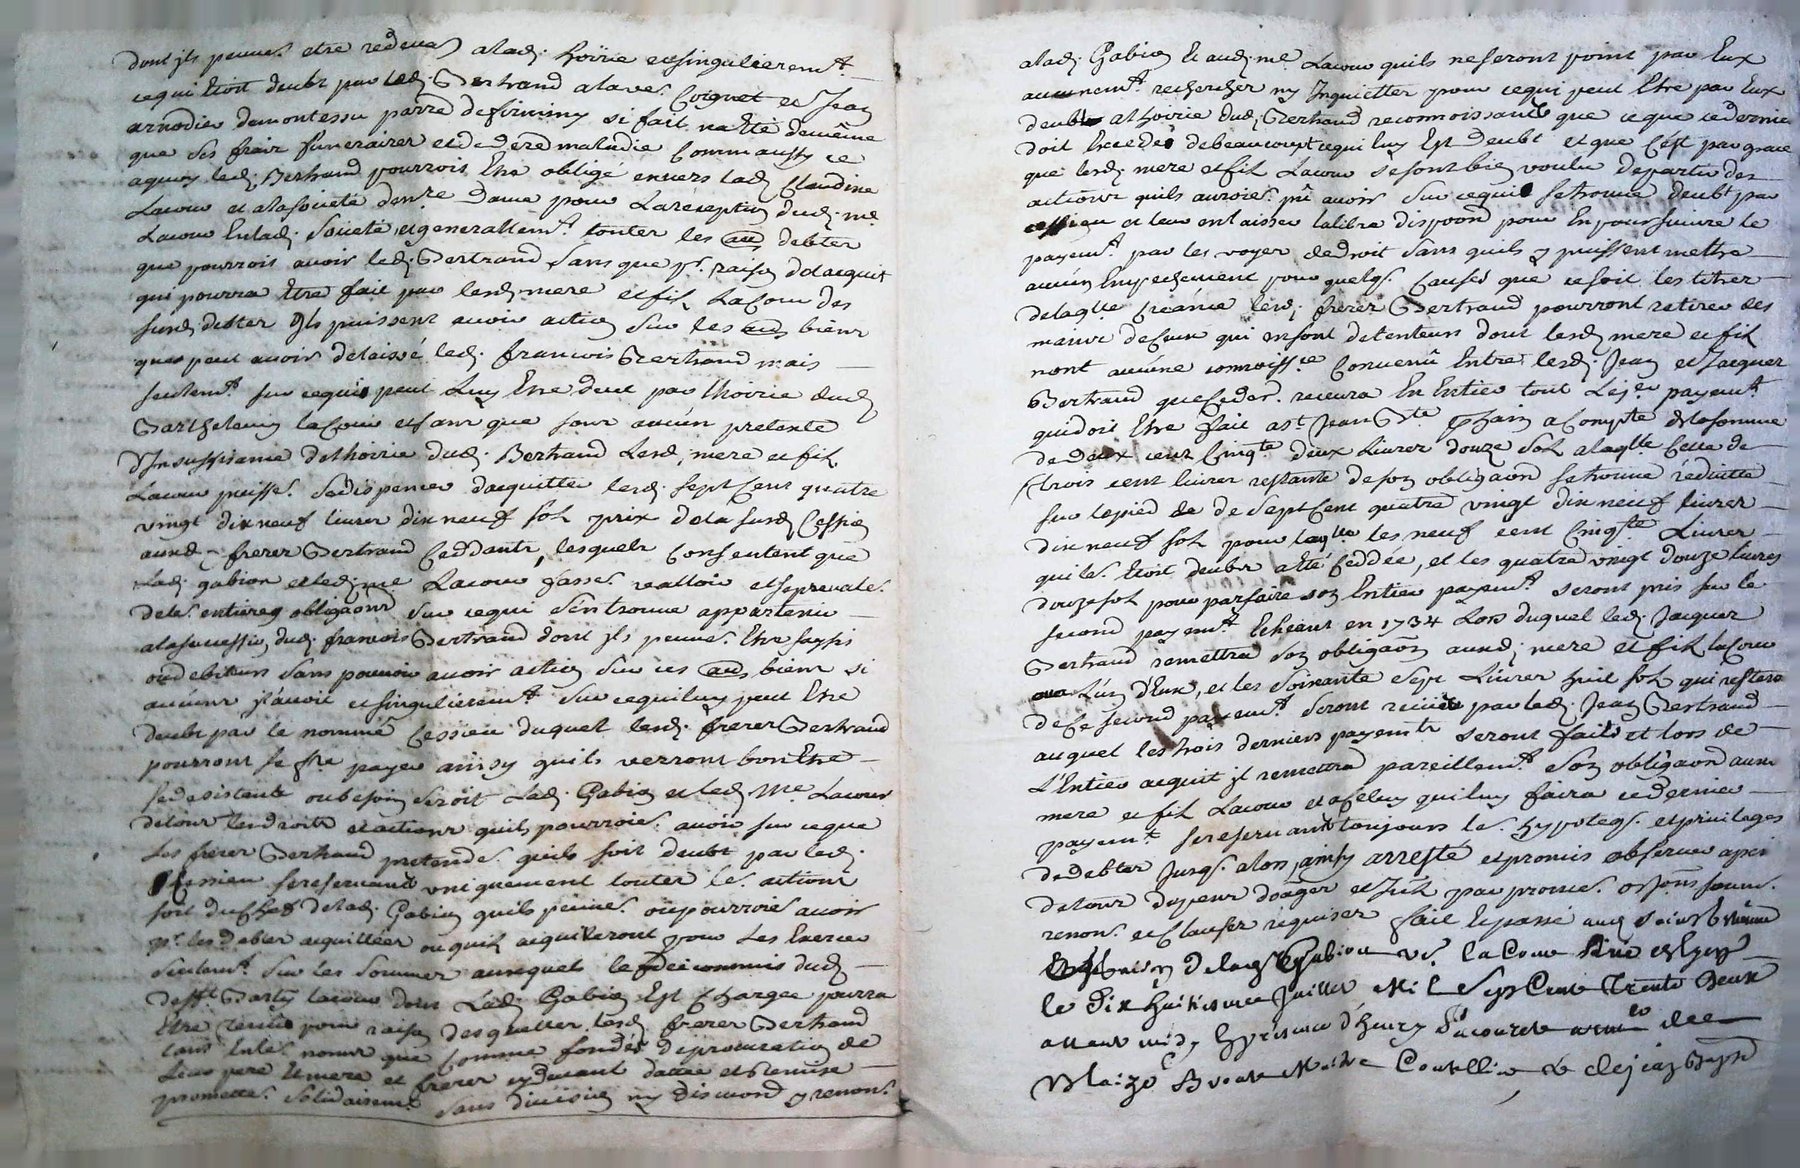 dont jls peuves. etre redevas aladj. hoirie et singulierem.t
ce qui Etoit deubt par ledj. Bertrand alaves. Coignet et Jean
arnodier demontessu parre de firminy si fait na Eté demême
que des frair funerairer et de dere maladie Comm aussy ce
aquoy ledj. Bertrand pourrois Etre obligé envers ladj Claudine
Lacour et alasocieté dence Dame pour Laréception dudj. me.
Lacour Enladj. Societé, et generallem.t touter les debter
que pourrois avoir ledj. Bertrand, Sans que pr. raison delacquit
qui pourra Etre fait par lesdj mere et fil Lacour des
susdj debter jls puissent avoir action Sur les biens
que peut avoir delaissé ledj. francois Bertrand mais
seulem.t sur cequi peut Luy Etre deut par lhoirie dudj
Barthelemy lacour et sans que sous aucun pretexte
d'Insuffisance delhoirie dudj. Bertrand Lesdj, mere et fil
Lacour puisse. sedispencer dacquitter lesdj. sept Cent quatre
vingt dix neuf livres dix neuf sol prix dela susdj Cession
auxdj. frerer Bertrand Ceddants, lesquels Consentent que
Ladj gabion et ledj. me Lacour fasse. valloir et seprevale.
deles. entieres obligaons sur cequi sentrouve appartenir
alasucession dudj. francois Bertrand dont jls peuves. Etre saysis
ou debiteurs sans pouvoir avoir action Sur ces biens si
aucuns jl avoit et singulierem.t sur cequiluy peut Etre
deubt par le nommé Cessieu duquel lesdj. frerer Bertrand
pourront se fre payer ainsy quils verront bon Etre
sedesistants oubesoin seroit Ladj. Gabion et ledj Me. Lacour
detous lesdroits et actions quils pourroies. avoir sur ceque
Les frerer Bertrand pretendes. quils soit deubt par ledj.
Cessieu sereservant uniquement touter les. actions
soit duchef deladj. Gabion quils peuves. ou pourroies avoir
pr. les debter acquittéer ou quils acquitteront pour Les Exercer
seulem.t sur les sommes auxquels le fideicommis dudj
deff.t Barthy lacour dont Ladj. Gabion Est chargée pourra
Etre tenue pour raison desqueller lesdj frerer Bertrand
tans Entes. noms que comme fondés de procuration de
Leur pere & mere et frerer cy devant dattée et Remise
promettes. solidairemt. sans division ny discuord y renons.
aladj. Gabion Et audj me. Lacour quils neseront point par Eux
aucunem.t rechercher ny Inquietter pour cequi peut Etre par Eux
deubt alhoirie dudj Bertrand reconnoissants que ceque cedernier
doit Excede debeaucoupt cequi luy Est Deubt et que C'est par grace
que lesdj mere et fil Lacour sesont bien voulu departir des
actions quils auroies. pû avoir sur cequi se trouve deubt par
cessieu et leur en laisser lalibre disposon pour En poursuivre le
payem.t par les voyer dedroit sans quils y puissent mettre
aucun Empechement pour quelqs. Causes que ce soit les titres
delaqlle creance lesdj frerer Bertrand pourront retirer des
mains deceux qui ensont detenteurs dont lesdj mere et fil
nont aucune connoiss.ce Convenû Entre lesdj Jean et Jacques
Bertrand que Ceder. recevra En Entier tout Le jer. payem.t
quidoit Etre fait a st Jean Bte. Proch. a Compte delasomme
de Deux cent Cinqte. deux Livres douze sol alaqlle Cette de
trois cent livres restante deson obligaon setrouve reduitte
sur lepied de de Sept Cent quatre vingt dix neuf livres
dix neuf sol pour laqlle les neuf cent Cinqte. Livres
quiles. Etoit deubs aété Ceddée, et les quatre vingt douze livres
douze sol pour parfaire son Entier payem.t seront pris sur le
second payem.t Echeant en 1734 Lors duquel ledj. Jacques
Bertrand remettra son obligaon auxdj mere et fil lacour
ou a Lun d'Eux, et les soixante sept Livres huit sol qui restera
dece second payem.t seront reçues par ledj. Jean Bertrand
auquel lestrois derniers payemts seront faits et lors de
L'Entier acquit jl remettra pareillem.t son obligaon auxdj
mere et fil Lacour et aCeluy quiluy faira cedernier
payem.t sereservants toujours les. hypoteqs. et privileges
dedebter Jusqs. alors, ainsy arresté et promis observer aper
detous depens domager et Juth par promes. ...
renons. et Clauses requises fait Et passé audj saint Etienne
En la maison delad. Gabion ve. lacour
le Dix huitieme Juillet Mil Sept Cent Trente deux
avant midy En presence d'henry
Blaize Coutellier & de Jean